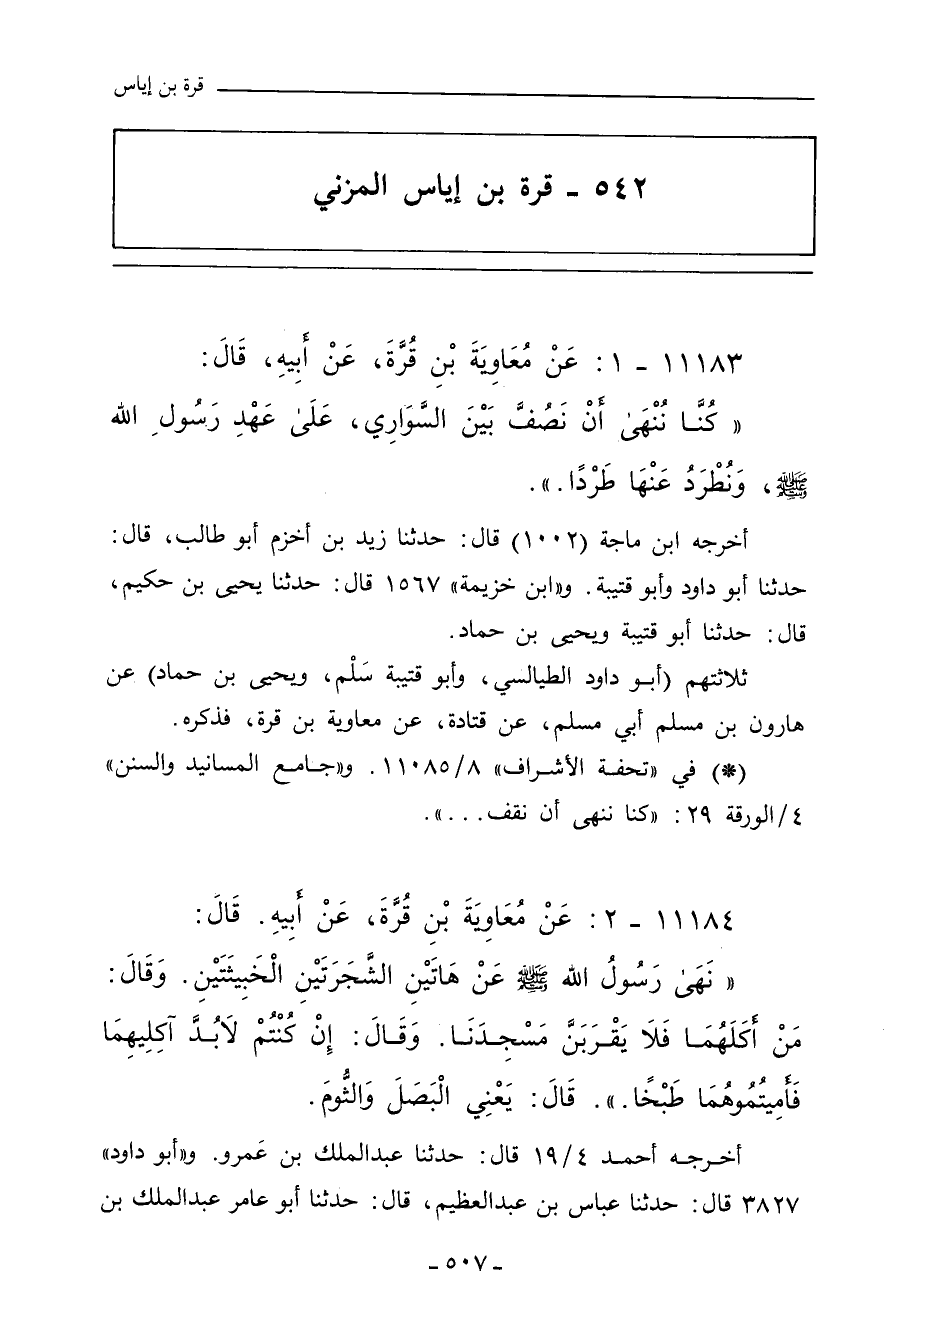 قرة بن إياس
٥٤٢ - قرة بن إياس المزني
١١١٨٣ - ١ : عَنْ مُعَاوِيَةَ بْنِ قُرَّةَ، عَنْ أَبِيهِ، قَالَ:
« كُنَّا نُنْهَىٰ أَنْ نَصُفَّ بَيْنَ السَّوَارِي، عَلَىٰ عَهْدِ رَسُولِ الله
ﷺ، وَنُطْرَدُ عَنْهَا طَرْدًا.».
أخرجه ابن ماجة (١٠٠٢) قال: حدثنا زيد بن أخزم أبو طالب، قال:
حدثنا أبو داود وأبو قتيبة. و«ابن خزيمة» ١٥٦٧ قال: حدثنا يحيى بن حكيم،
قال: حدثنا أبو قتيبة ويحيى بن حماد.
ثلاثتهم (أبو داود الطيالسي، وأبو قتيبة سَلْم، ويحيى بن حماد) عن
هارون بن مسلم أبي مسلم، عن قتادة، عن معاوية بن قرة، فذكره.
(*) في «تحفة الأشراف» ١١٠٨٥/٨. و«جامع المسانيد والسنن»
٤/الورقة ٢٩: «كنا ننهى أن نقف...».
١١١٨٤ - ٢ : عَنْ مُعَاوِيَةَ بْنِ قُرَّةَ، عَنْ أَبِيهِ. قَالَ:
« نَهَىٰ رَسُولُ الله ﷺ عَنْ هَاتَيْنِ الشَّجَرَتَيْنِ الْخَبِيثَتَيْنِ. وَقَالَ:
مَنْ أَكَلَهُمَا فَلَا يَقْرَبَنَّ مَسْجِدَنَا. وَقَالَ: إِنْ كُنْتُمْ لَابُدَّ آكِلِيهِمَا
فَأَمِيتُمُوهُمَا طَبْخًا.». قَالَ: يَعْنِي الْبَصَلَ وَالثُّومَ.
أخرجه أحمد ١٩/٤ قال: حدثنا عبدالملك بن عَمرو. و«أبو داود»
٣٨٢٧ قال: حدثنا عباس بن عبدالعظيم، قال: حدثنا أبو عامر عبدالملك بن
- ٥٠٧ -